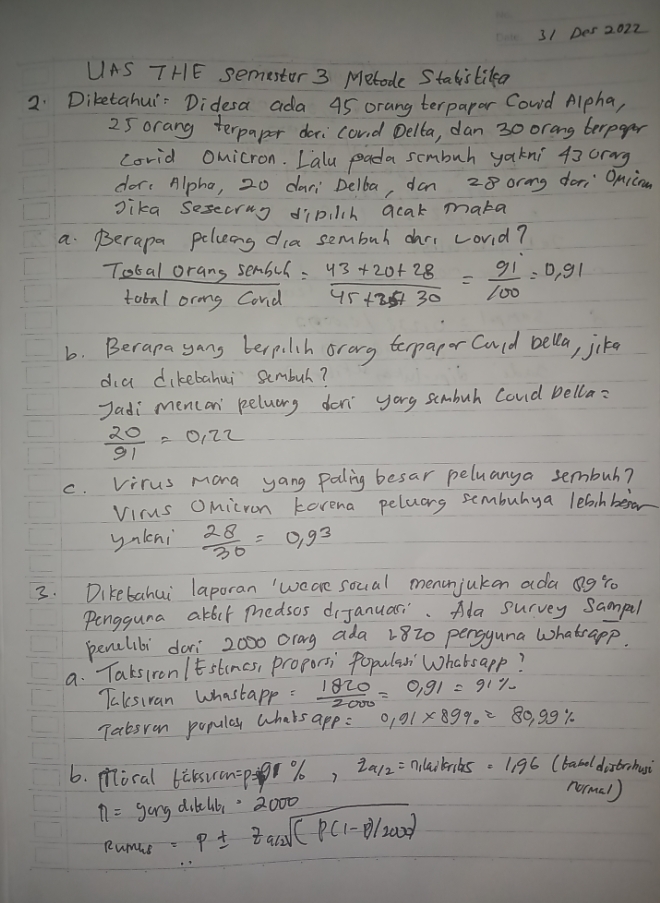 31 Des 2022
UAS THE Semester 3 Metode Statistika
2. Diketahui = Didesa ada 45 orang terpapar Covid Alpha,
25 orang terpapar dari Covid Delta, dan 30 orang terpapar
Covid Omicron. Lalu pada sembuh yakni 43 orang
dari Alpha, 20 dari Delta, dan 28 orang dari Omicron
Jika Seseorang dipilih acak maka
a. Berapa peluang dia sembuh dari covid?
Total orang sembuh / total orang Covid = 43 + 20 + 28 / 45 + 25 + 30 = 91 / 100 = 0,91
b. Berapa yang terpilih orang terpapar Covid Delta, jika
dia diketahui sembuh?
Jadi mencari peluang dari yang sembuh Covid Delta =
20 / 91 = 0,22
c. Virus mana yang paling besar peluanya sembuh?
Virus Omicron karena peluang sembuhya lebih besar
yakni 28 / 30 = 0,93
3. Diketahui laporan 'weare social menunjukan ada 89%
Pengguna aktif medsos dijanuari. Ada survey Sampel
penelibi dari 2000 orang ada 1820 pengguna whatsapp.
a. Taksiran / Estimasi proporsi Populasi Whatsapp?
Taksiran Whastapp = 1820 / 2000 = 0,91 = 91%
Taksiran populasi whatsapp = 0,91 x 89% = 80,99%
b. taksiran = p = 91%, Za/2 = nilai kritis = 1,96 (tabel distribusi
normal)
n = yang diteliti = 2000
Rumus = p ± Za/2 √( p(1-p)/2000)